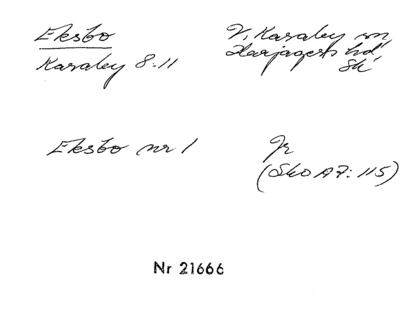 Eksbo
Karaby 8.11
V. Karaby sn
Harjagers hd
Sk
Eksbo nr 1
Jr
(SkO A7:115)
Nr 21666